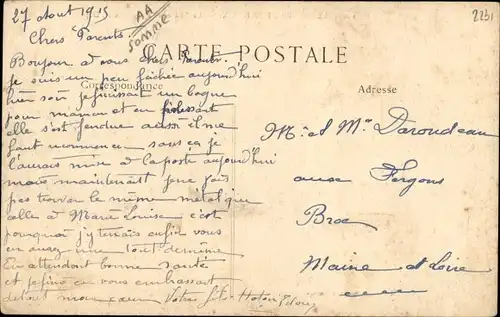 27 Aout 1915
AA
SOMME
2251
Chers Parents
CARTE POSTALE
Correspondance
Adresse
Bonjour a vous chers Parents
je suis un peu fachée aujourd'hui
hier soir je finissait un bague
pour maman et en finissant
elle s'est fendue aussi il me
faut recommencer sans ça je
l'aurais mise a la poste aujourd'hui
mais maintenant je ne sais
pas trouver le même métal que
celle a Marie Louise c'est
pourquoi j'y tenais enfin vous
en aurez une tout de même
En attendant bonne santé
et je fini en vous embrassant
de tout mon cœur Votre fils
M. et Me Daroudeau
aux Fergons
Broc
Maine et Loire